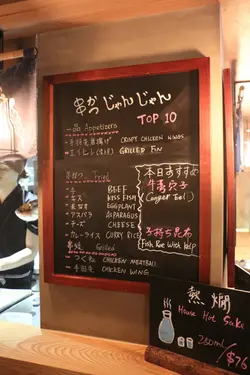 串かつ じゃんじゃん
TOP 10
一品 Appetizers
手羽先唐揚げ CRISPY CHICKEN WINGS
エイヒレ GRILLED FIN
串かつ Fried
牛 BEEF
キス KISS FISH
長茄子 EGGPLANT
アスパラ ASPARAGUS
チーズ CHEESE
カレーライス CURRY RICE
串焼 Grilled
つくね CHICKEN MEATBALL
手羽先 CHICKEN WING
本日おすすめ
牛蒡穴子
(Conger Eel)
子持ち昆布
(Fish Roe With Kelp)
熱燗
House Hot Sake
260ml/$76